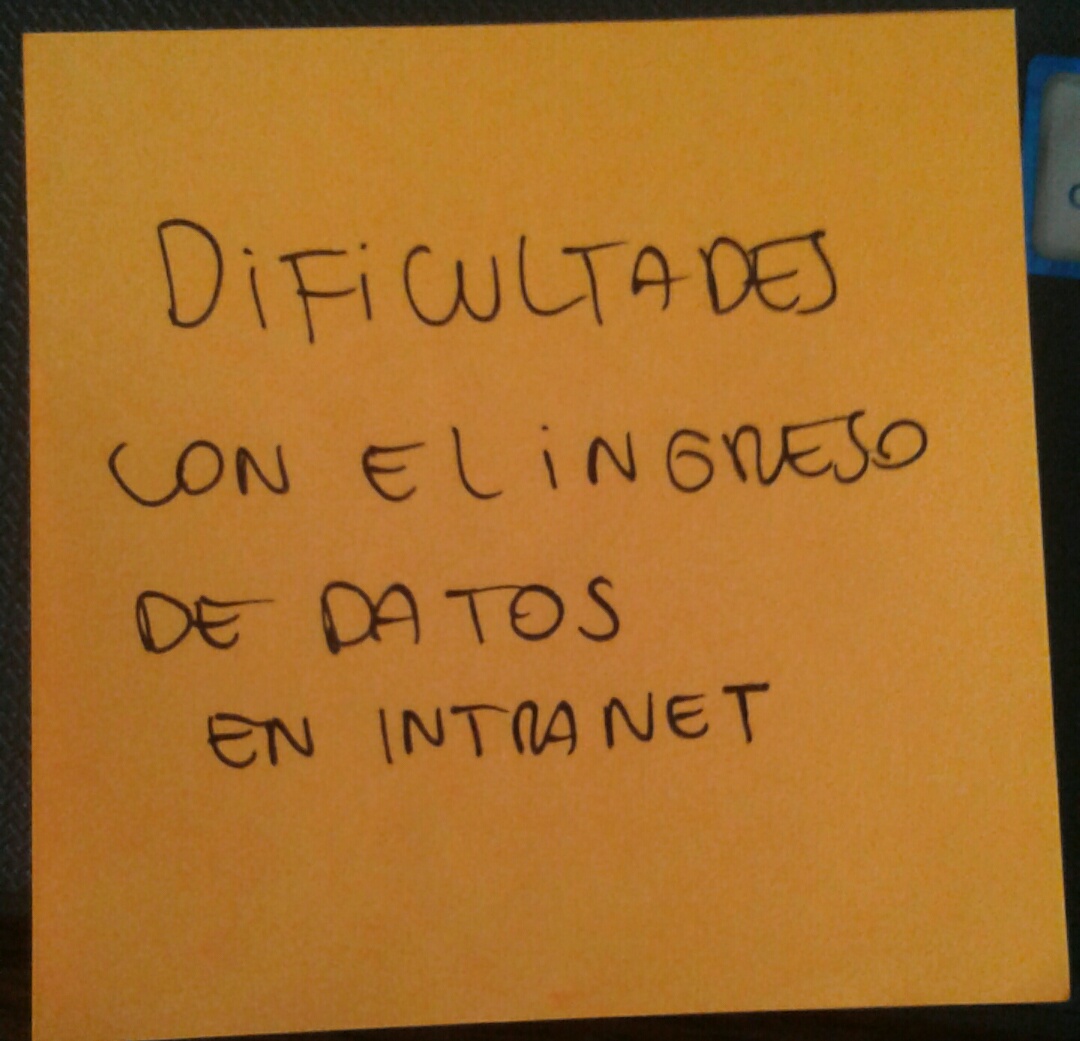 DIFICULTADES
CON EL INGRESO
DE DATOS
EN INTRANET